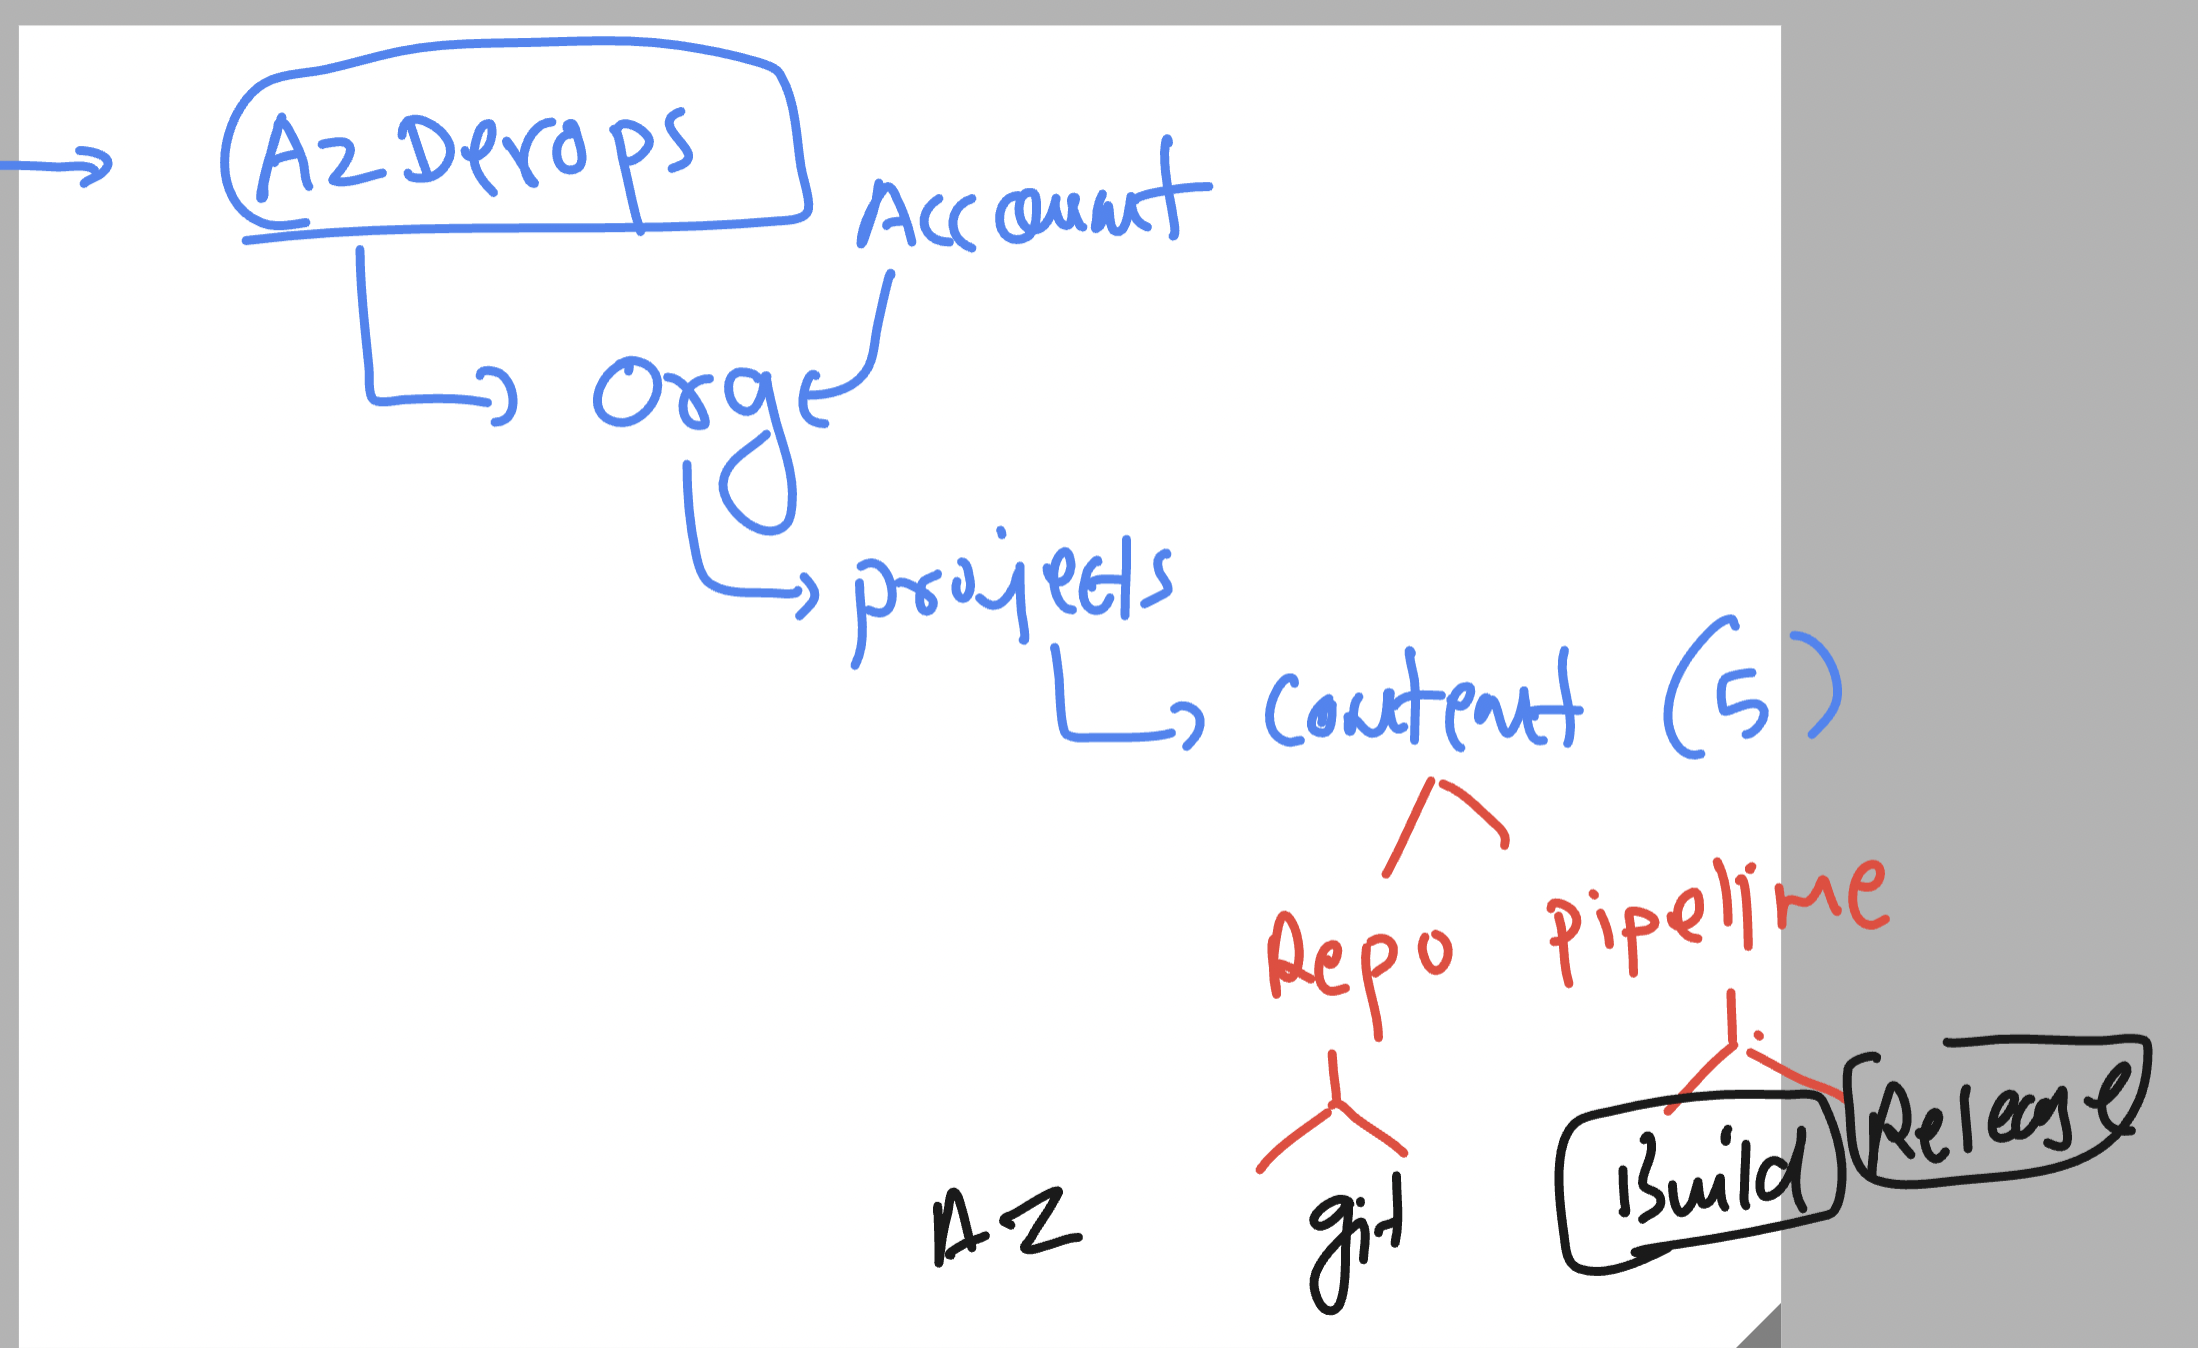 Az Devops
Account
Org
projects
Content (5)
Repo pipeline
AZ git Build Release